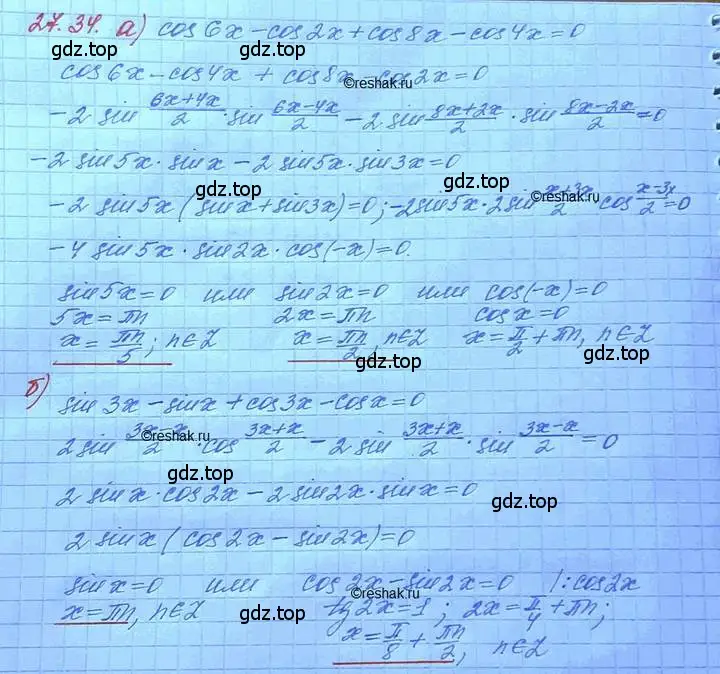 27.34. а) cos6x-cos2x+cos8x-cos4x=0
gdz.top
gdz.top
cos6x-cos4x + cos8x-cos2x=0
©reshak.ru
-2 sin (6x+4x)/2 · sin (6x-4x)/2 - 2 sin (8x+2x)/2 · sin (8x-2x)/2 = 0
-2 sin5x · sinx - 2 sin5x · sin3x=0
gdz.top
gdz.top
©reshak.ru
-2 sin5x (sinx+sin3x)=0; -2sin5x·2sin (x+3x)/2 · cos (x-3x)/2 = 0
-4 sin5x · sin2x · cos(-x)=0.
sin5x=0 или sin2x=0 или cos(-x)=0
5x=πn 2x=πn cosx=0
x= πn/5; n∈Z x= πn/2, n∈Z x= π/2 + πn, n∈Z
gdz.top
gdz.top
б) sin3x-sinx+cos3x-cosx=0
©reshak.ru
2 sin (3x-x)/2 · cos (3x+x)/2 - 2 sin (3x+x)/2 · sin (3x-x)/2 = 0
gdz.top
2 sinx · cos2x - 2 sin2x · sinx=0
gdz.top
2 sinx (cos2x - sin2x)=0
sinx=0 или cos2x-sin2x=0 /:cos2x
©reshak.ru
x=πn, n∈Z tg2x=1; 2x= π/4 + πn;
gdz.top
gdz.top
x= π/8 + πn/2, n∈Z